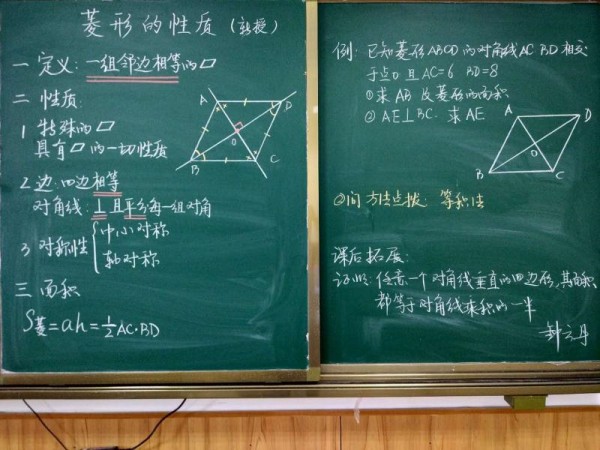 菱形的性质 (新授)
一 定义: 一组邻边相等的▱
二 性质:
1 特殊的▱
具有▱的一切性质
2 边: 四边相等
对角线: ⊥且平分每一组对角
3 对称性 { 中心对称
轴对称
三 面积
S菱=ah=½AC·BD
A
D
O
B
C
例: 已知菱形ABCD的对角线AC BD相交
于点O 且AC=6 BD=8
①求AB及菱形的面积
②AE⊥BC. 求AE
A
D
O
B
C
②问 方法点拨: 等积法
课后拓展:
证明: 任意一个对角线垂直的四边形,其面积
都等于对角线乘积的一半